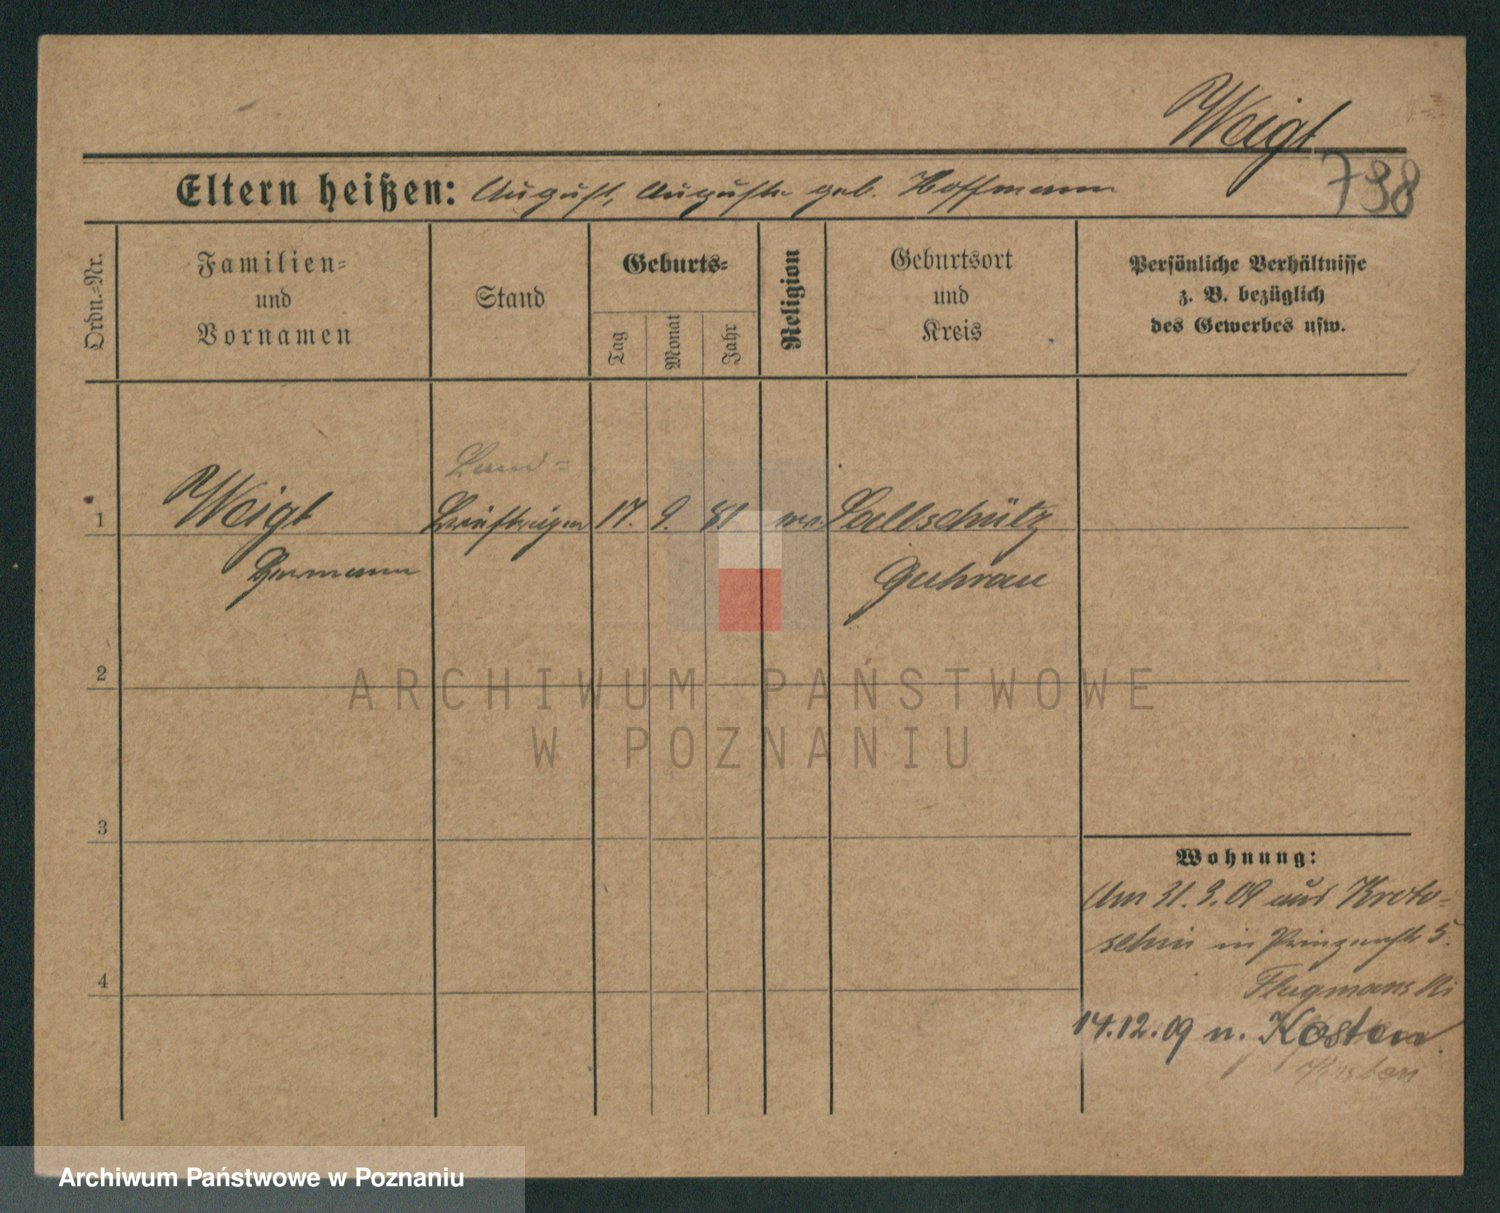 Weigt
798
Eltern heißen: August, Auguste geb. Hoffmann
Ordn.-Nr.
Familien-
und
Vornamen
Stand
Geburts-
Tag
Monat
Jahr
Religion
Geburtsort
und
Kreis
Persönliche Verhältnisse
z. B. bezüglich
des Gewerbes usw.
Land-
1 Weigt 17. 9. 81 Sallschütz
Hermann Guhrau
2
ARCHIWUM PAŃSTWOWE
W POZNANIU
3
Wohnung:
Am 31.3.09 aus Kroto-
schin in Prinzenstr 5.
4
14.12.09 n. Kosten.
Kosten
Archiwum Państwowe w Poznaniu